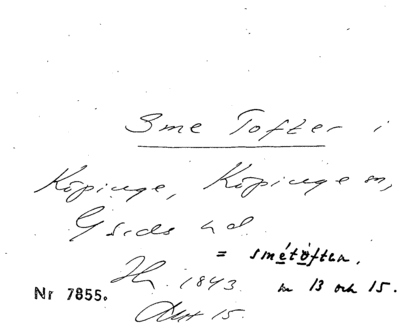 Sme Tofter i
Köpinge, Köpinge sn,
Gärds hd.
= smétöften.
1843. nr 13 och 15.
Nr 7855.
Akt 15.